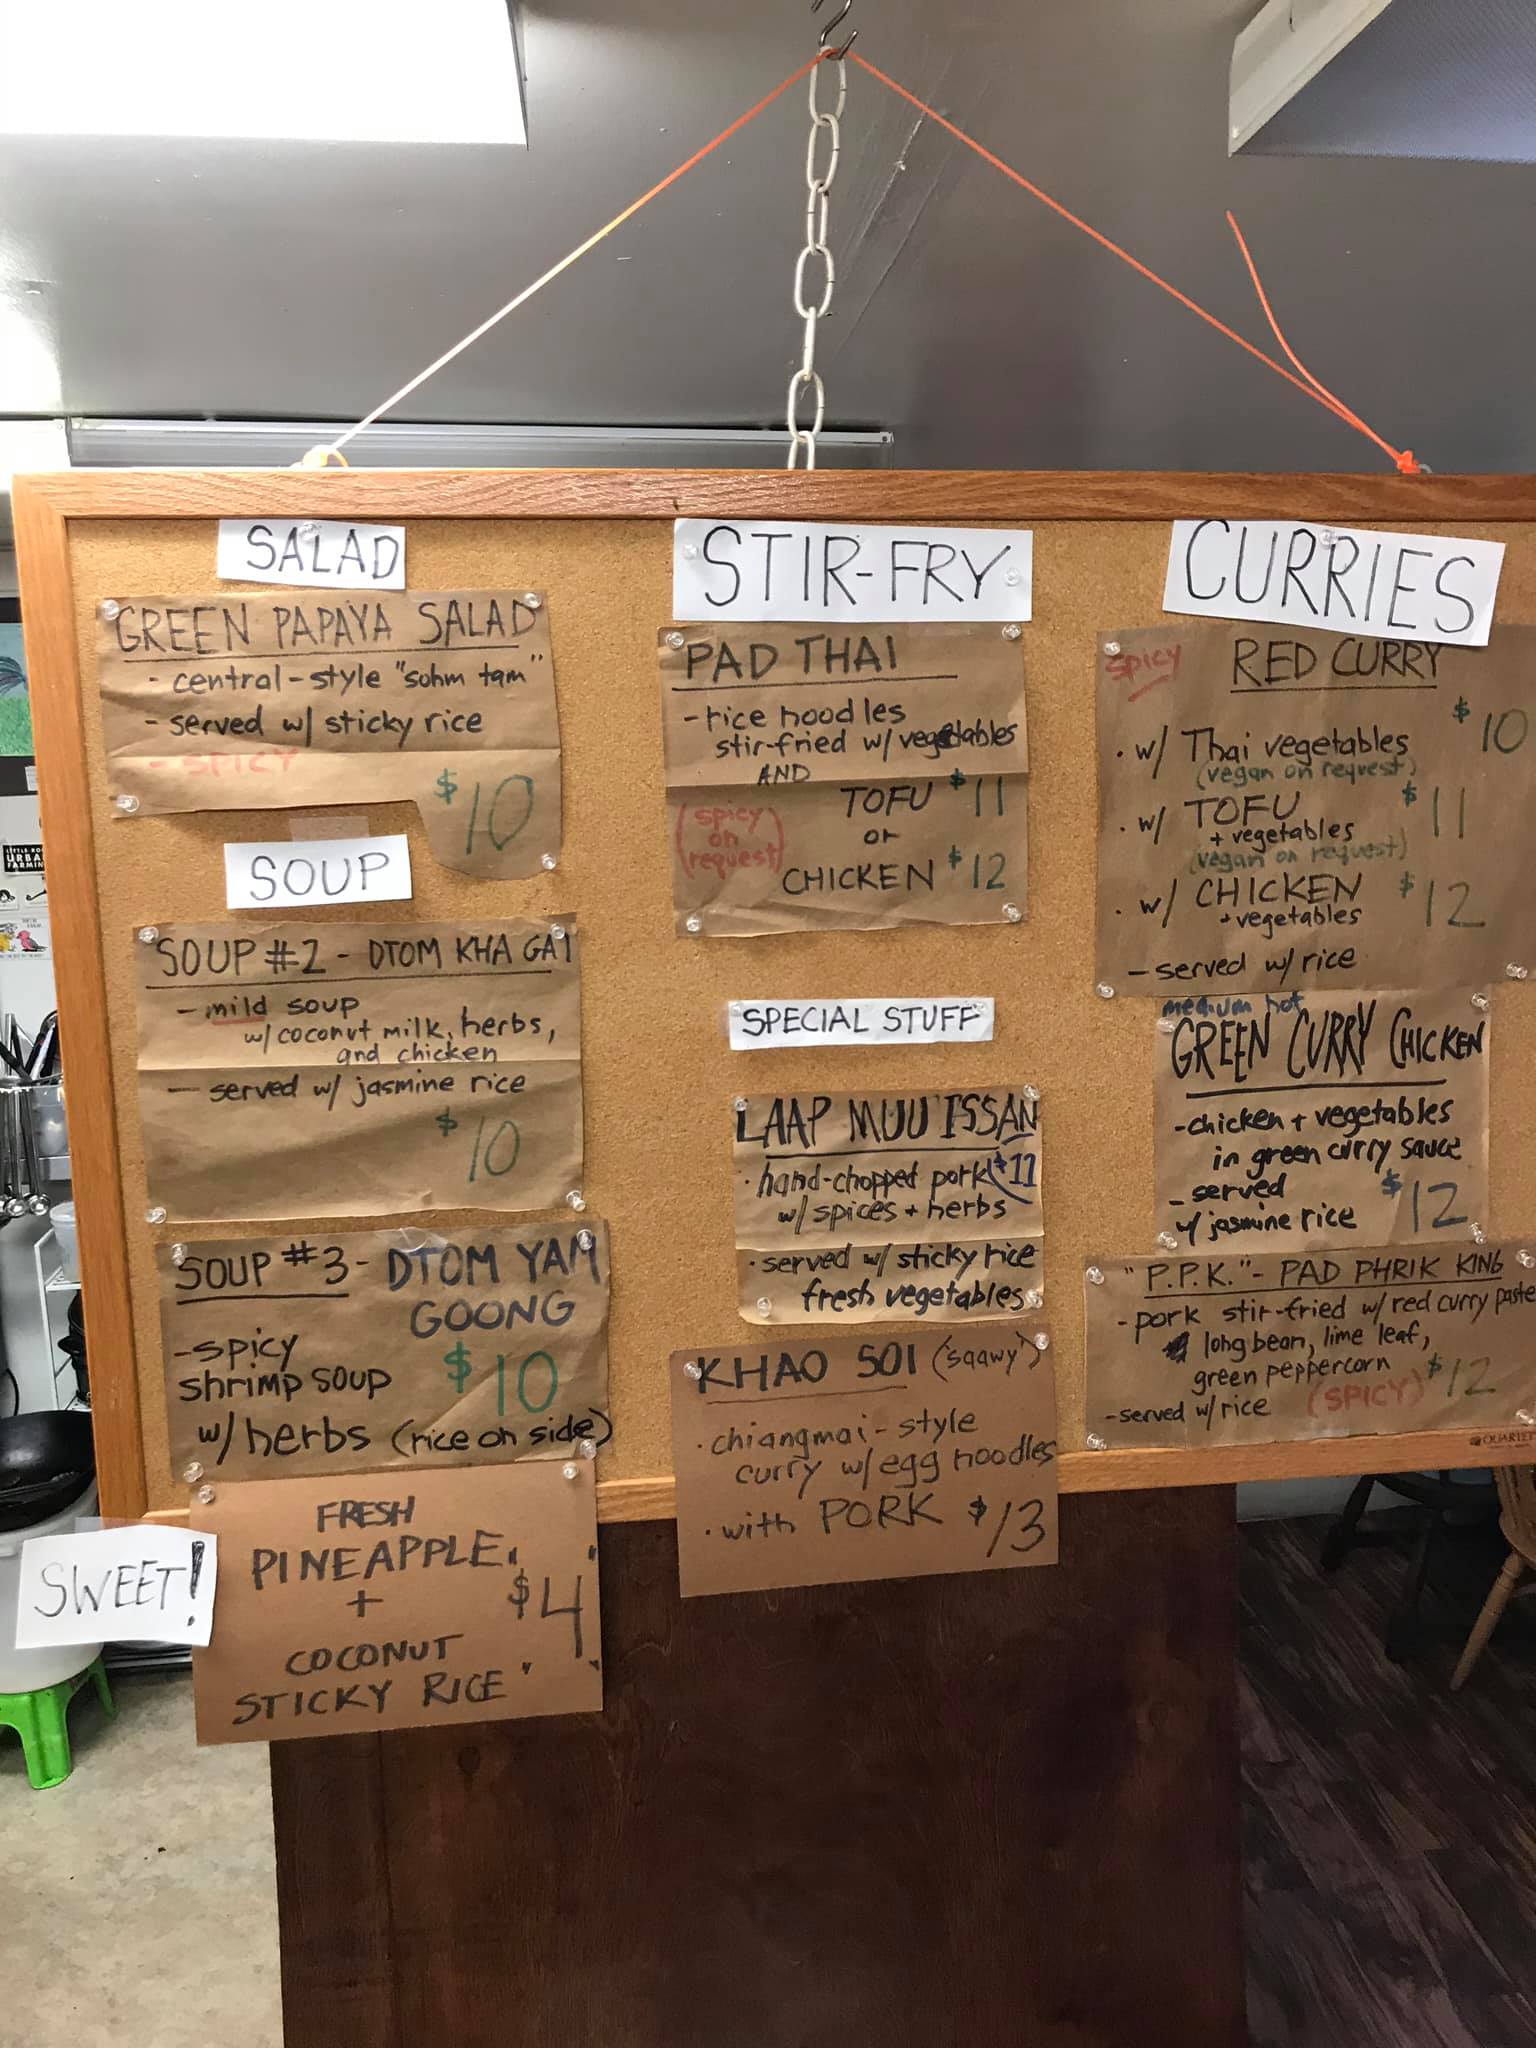 SALAD
GREEN PAPAYA SALAD
- central-style "sohm tam"
- served w/ sticky rice
- SPICY
$10
SOUP
SOUP #2 - DTOM KHA GAI
- mild soup
w/ coconut milk, herbs,
and chicken
- served w/ jasmine rice
$10
SOUP #3 - DTOM YAM
GOONG
- spicy
shrimp soup
$10
w/ herbs (rice on side)
SWEET!
FRESH
PINEAPPLE
+
$4
COCONUT
STICKY RICE
STIR-FRY
PAD THAI
- rice noodles
stir-fried w/ vegetables
AND
TOFU $11
(spicy on request)
or
CHICKEN $12
SPECIAL STUFF
LAAP MUU ISSAN
· hand-chopped pork ($11
w/ spices + herbs
· served w/ sticky rice
fresh vegetables
KHAO SOI ('saawy')
· chiangmai-style
curry w/ egg noodles
· with PORK $13
CURRIES
spicy RED CURRY
$10
· w/ Thai vegetables
(vegan on request)
· w/ TOFU $11
+ vegetables
(vegan on request)
· w/ CHICKEN $12
+ vegetables
- served w/ rice
medium hot
GREEN CURRY CHICKEN
- chicken + vegetables
in green curry sauce
- served $12
w/ jasmine rice
"P.P.K." - PAD PHRIK KING
- pork stir-fried w/ red curry paste
long bean, lime leaf,
green peppercorn $12
- served w/ rice (SPICY)
QUARTET
URBA
FARMIN